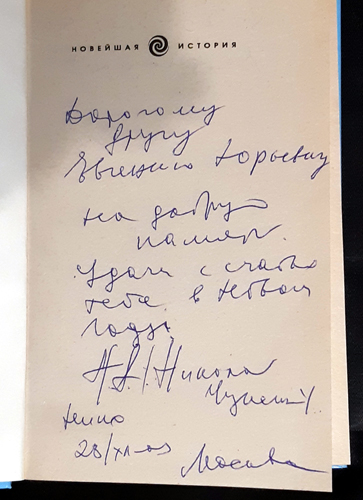 НОВЕЙШАЯ ИСТОРИЯ
Дорогому
другу
Евгению Юрьевичу
на добрую
память.
Удачи и счастья
тебе в Новом
году
28/XII-03
Москва